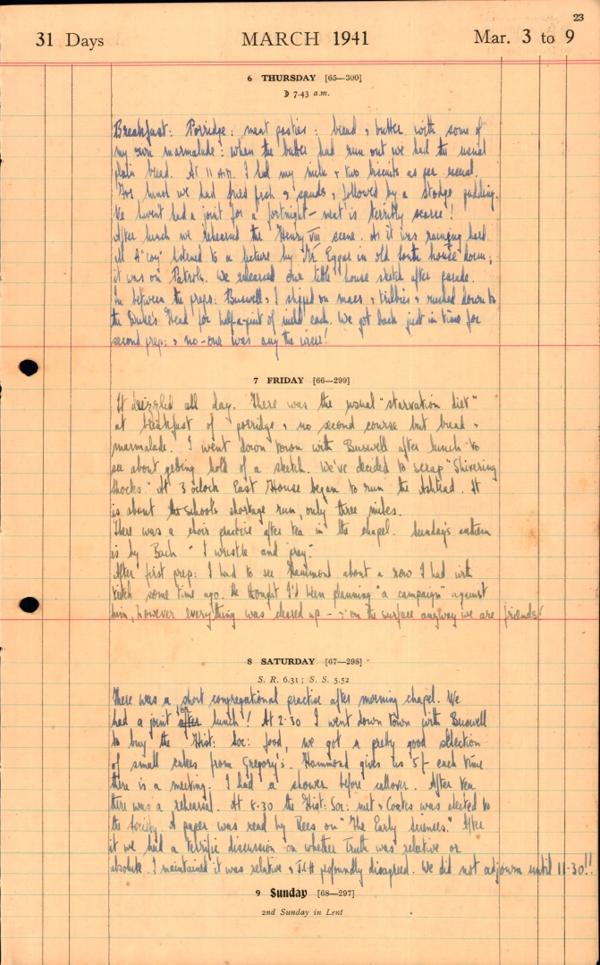 23
31 Days MARCH 1941 Mar. 3 to 9
6 THURSDAY [65—300]
☽ 7.43 a.m.
Breakfast: Porridge: meat pasties: bread & butter with some of
my own marmalade: when the butter had run out we had the usual
plain bread. At 11 A.M. I had my milk & two biscuits as per usual.
For lunch we had fried fish & spuds & followed by a stodge pudding.
We haven't had a joint for a fortnight — meat is terribly scarce!
After lunch we rehearsed the Henry VIII scene. As it was raining hard
all "A" coy listened to a lecture by Mr. Eggar in old South house down;
it was on Patrols. We rehearsed our little house sketch after parade.
In between the preps: Buswell & I slipped on macs & trilbies & rushed down to
the Duke's Head for half-a-pint of mild each. We got back just in time for
second prep: & no-one was any the wiser!
7 FRIDAY [66—299]
It drizzled all day. There was the usual "starvation diet"
at breakfast of porridge & no second course but bread &
marmalade. I went down town with Buswell after lunch to
see about getting hold of a sketch. We've decided to scrap "Shivering
Shocks." At 3 o'clock East House began to run the Ashtead. It
is about the schools shortage run, only three miles.
There was a choir practice after tea in the chapel. Sunday's anthem
is by Bach "I wrestle and pray."
After first prep: I had to see Hammond about a row I had with
some time ago. He thought I'd been planning "a campaign" against
him, however everything was cleared up — & on the surface anyway we are friends!
8 SATURDAY [67—298]
S. R. 6.31; S. S. 5.52
There was a short congregational practice after morning chapel. We
had a joint for lunch!! At 2.30 I went down town with Buswell
to buy the Hist: Soc: food, we got a pretty good selection
of small cakes from Gregory's. Hammond gives us 5/- each time
there is a meeting. I had a shower before callover. After tea
there was a rehearsal. At 8.30 the Hist: Soc: met & Coates was elected to
the Society. A paper was read by Rees on "The Early Sciences." After
it we had a terrific discussion on whether Truth was relative or
absolute. I maintained it was relative & profoundly disagreed. We did not adjourn until 11.30!!
9 Sunday [68—297]
2nd Sunday in Lent